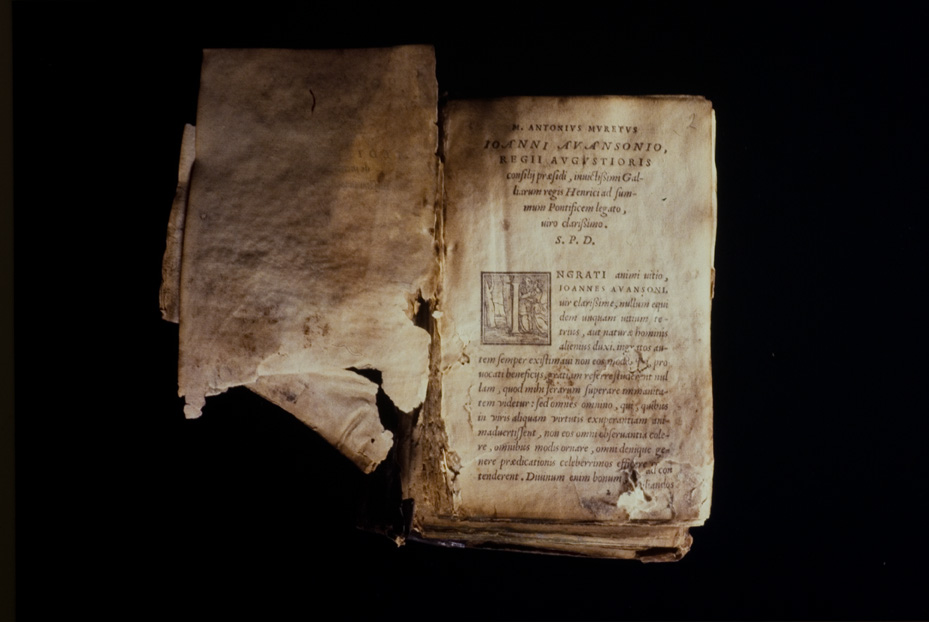 2
M. ANTONIVS MVRETVS
IOANNI AVANSONIO,
REGII AVGVSTIORIS
consilij præsidi, inuictissimi Gal-
liarum regis Henrici ad sum-
mum Pontificem legato,
uiro clarissimo.
S. P. D.
INGRATI animi uitio,
IOANNES AVANSONI,
uir clarissime, nullum equi
dem unquam uitium te-
trius, aut naturæ hominis
alienius duxi. ingratos au-
tem semper existimaui non eos modo, qui pro
uocati beneficijs, gratiam referre studerent nul
lam, quod mihi ferarum superare immanita-
tem videtur: sed omnes omnino, qui, quibus
in viris aliquam virtutis exuperantiam ani-
maduertissent, non eos omni obseruantia cole-
re, omnibus modis ornare, omni denique ge-
nere prædicationis celeberrimos efficere
con
tenderent. Diuinum enim bonum